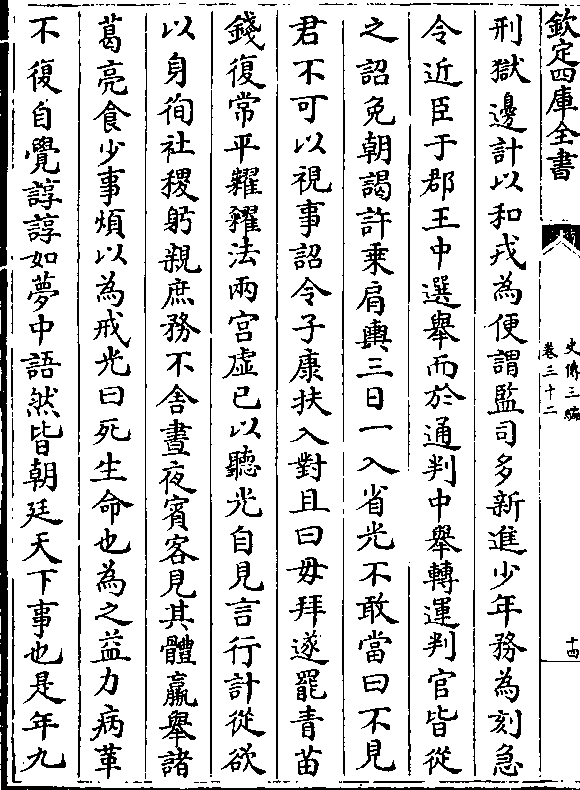 欽定四庫全書
史傳三編
卷三十二
十四
刑獄邊計以和戎為便謂監司多新進少年務為刻急
令近臣于郡王中選舉而於通判中舉轉運判官皆從
之詔免朝謁許乗肩輿三日一入省光不敢當曰不見
君不可以視事詔令子康扶入對且曰毋拜遂罷青苗
錢復常平糶糴法兩宫虛已以聽光自見言行計從欲
以身徇社稷躬親庶務不舍晝夜賓客見其體羸舉諸
葛亮食少事煩以為戒光曰死生命也為之益力病革
不復自覺諄諄如夢中語然皆朝廷天下事也是年九